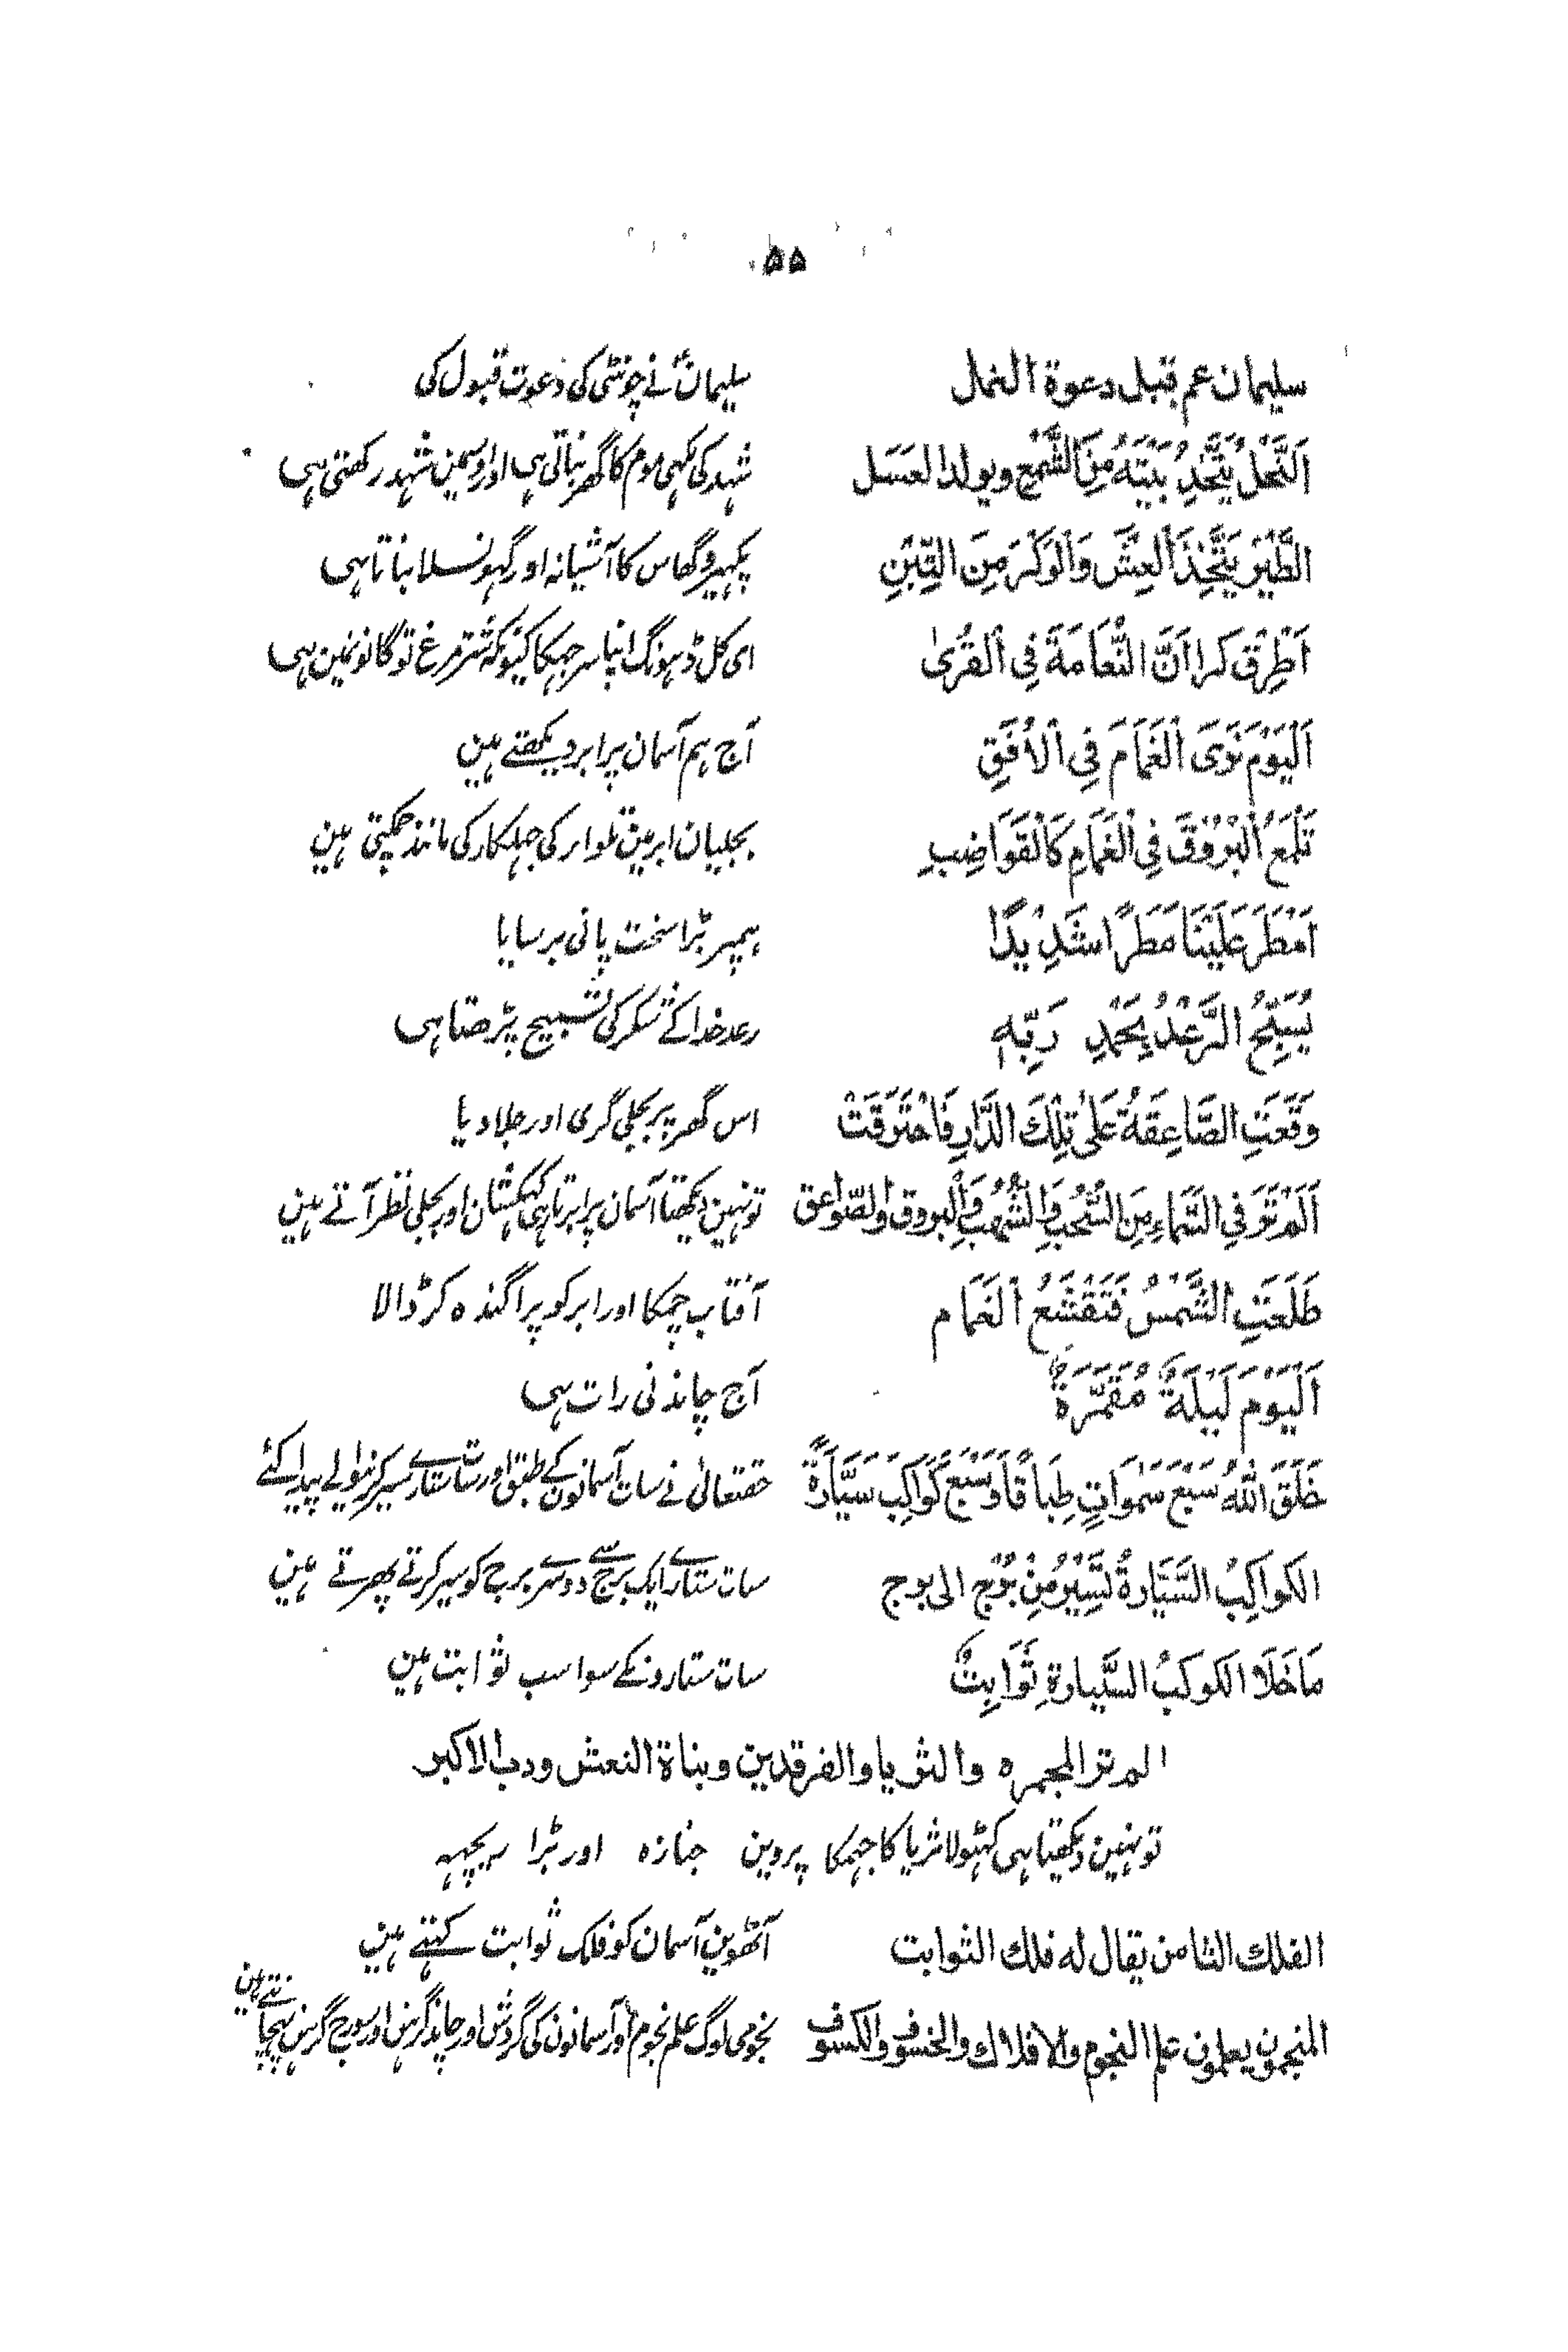 ۵۵
سلیمان عم قبل دعوة النمال سلیمانؑ نے چونٹی کی دعوت قبول کی
اَلنَّحْلُ یَتَّخِذُ بَیْتَهُ مِنَ الشَّمْعِ ویولد العَسَل شہد کی مکہی موم کا گھر بناتی ہی اور اوسمین شہد رکھتی ہی
الطَّیْرَ یَتَّخِذُ العِشَّ وَالوَکْرَ مِنَ التِّبْنِ پکہیرو گھاس کا آشیانہ اور گہونسلا بناتا ہی
اَطْرِقْ کَرا اَنَّ النَّعَامَةَ فِی الْقُریٰ ای کل ڈہونگ اپنا سر جہکا کیونکہ شتر مرغ تو گانونمین ہی
اَلْیَوْمَ نَرَی الغَمَامَ فِی الْاُفَقِ آج ہم آسمان پر ابر دیکھتے ہین
تَلْمَعُ الْبُرُوْقَ فِی الْغَمَامِ کَالْقَوَاضِبِ بجلیان ابر مین تلوار کی جہلکار کی مانند چمکتی ہین
اَمْطَرَ عَلَیْنَا مَطَرًا شَدِیْدًا ہمپر بڑا سخت پانی برسایا
یُسَبِّحُ الرَّعْدُ بِحَمْدِ رَبِّهِ رعد خدا کے شکر کی تسبیح پڑھتا ہی
وَقَعَتِ الصَّاعِقَةُ عَلیٰ تِلْكَ الدَّارِ فَاحْتَرَقَتْ اس گھر پر بجلی گری اور جلا دیا
اَلَمْ تَرَ فِی السَّمَاءِ مِنَ السُّحُبِ وَالشُّهُبِ وَالبروق والصّواعق تو نہین دیکھتا آسمان پر ابر تا ہی کہکشان اور بجلی نظر آتے ہین
طَلَعَتِ الشَّمْسُ فَتَقَشَّعُ الغَمَام آفتاب چمکا اور ابر کو پراگندہ کر ڈالا
اَلْیَوْمَ لَیْلَةٌ مُقَمَّرَةٌ آج چاندنی رات ہی
خَلَقَ اللهُ سَبْعَ سَمٰوَاتٍ طِبَاقًا وَسَبْعَ کَوَاکِبَ سَیَّارَةً حقتعالیٰ نے سات آسمانون کے طبق اور سات ستارے سیر کرنیوالے پیدا کئے
الکواکِبُ السَّیَّارَةُ تَسِیْرُ مِنْ بُرْجٍ الی برج سات ستارے ایک برج سے دوسرے برج کو سیر کرتے پھرتے ہین
مَاخَلَا الکوکَبُ السَّیارةِ ثَوَابِتٌ سات ستارونکے سوا سب ثوابت ہین
الم تر المجمره والثریا والفرقدین وبناة النعش ودب الاکبر
تو نہین دیکھتا ہی کہٹولا ثریا کا جہمکا پروین جنازہ اور بڑا ریچہہ
الفلك الثامن یقال له فلك الثوابت آٹھوین آسمان کو فلک ثوابت کہتے ہین
المنجمون یعلمون علم النجوم والافلاك والخسوف والکسوف نجومی لوگ علم نجوم اور آسمانون کی گردش اور چاند گرہن اور سورج گرہن پہچانتے ہین